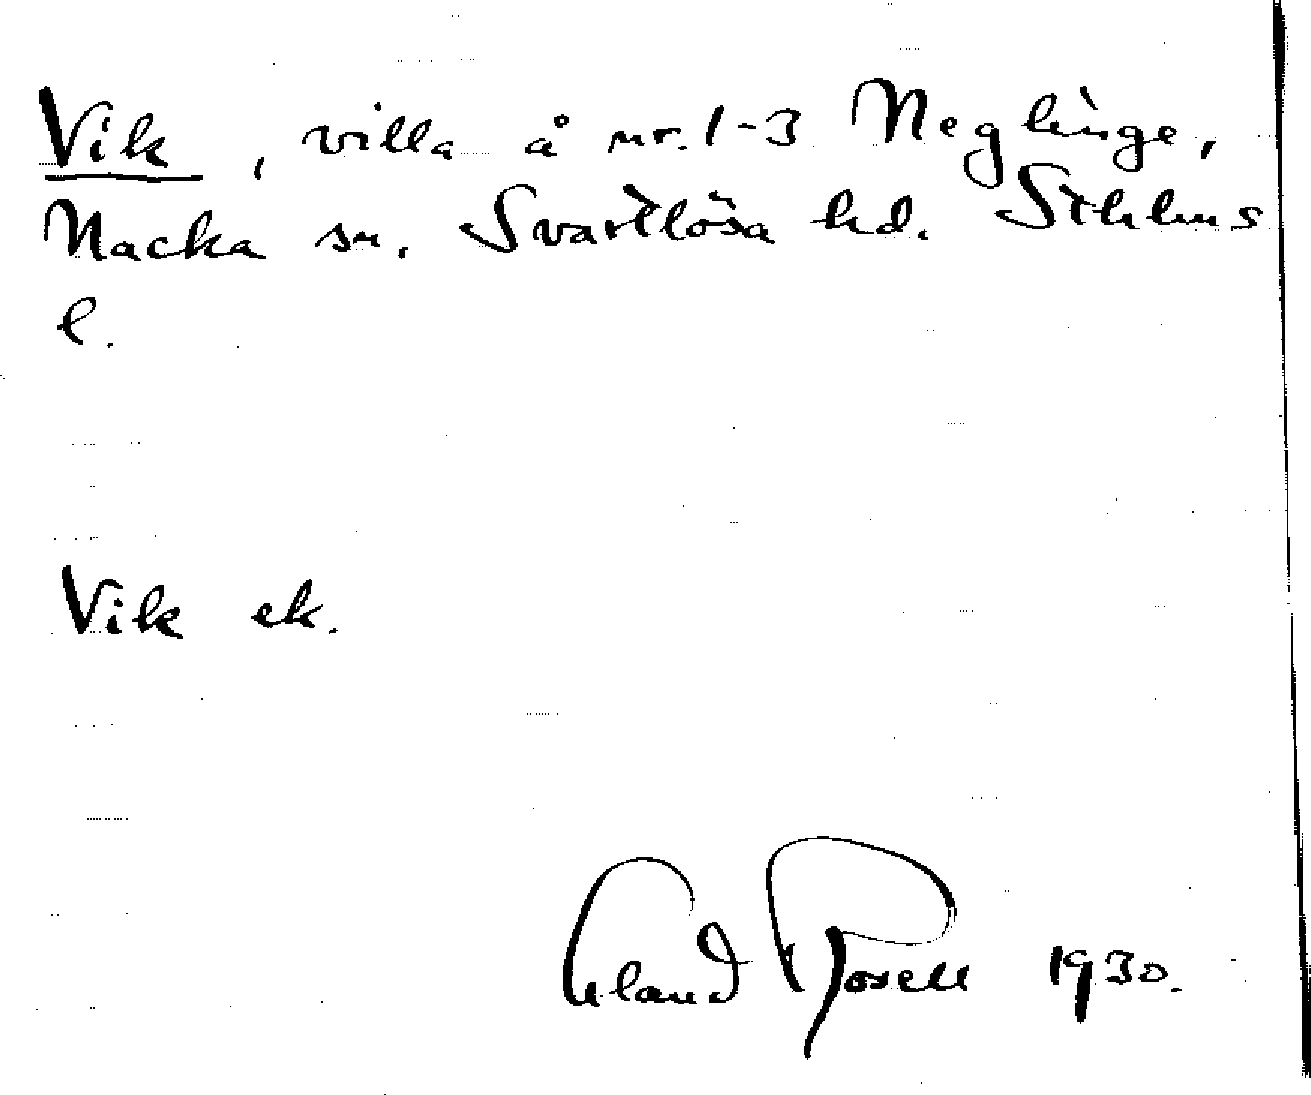 Vik, villa å nr. 1-3 Neglinge,
Nacka sn. Svartlösa hd. Sthlms
l.
Vik ek.
Erland Rosell 1930.